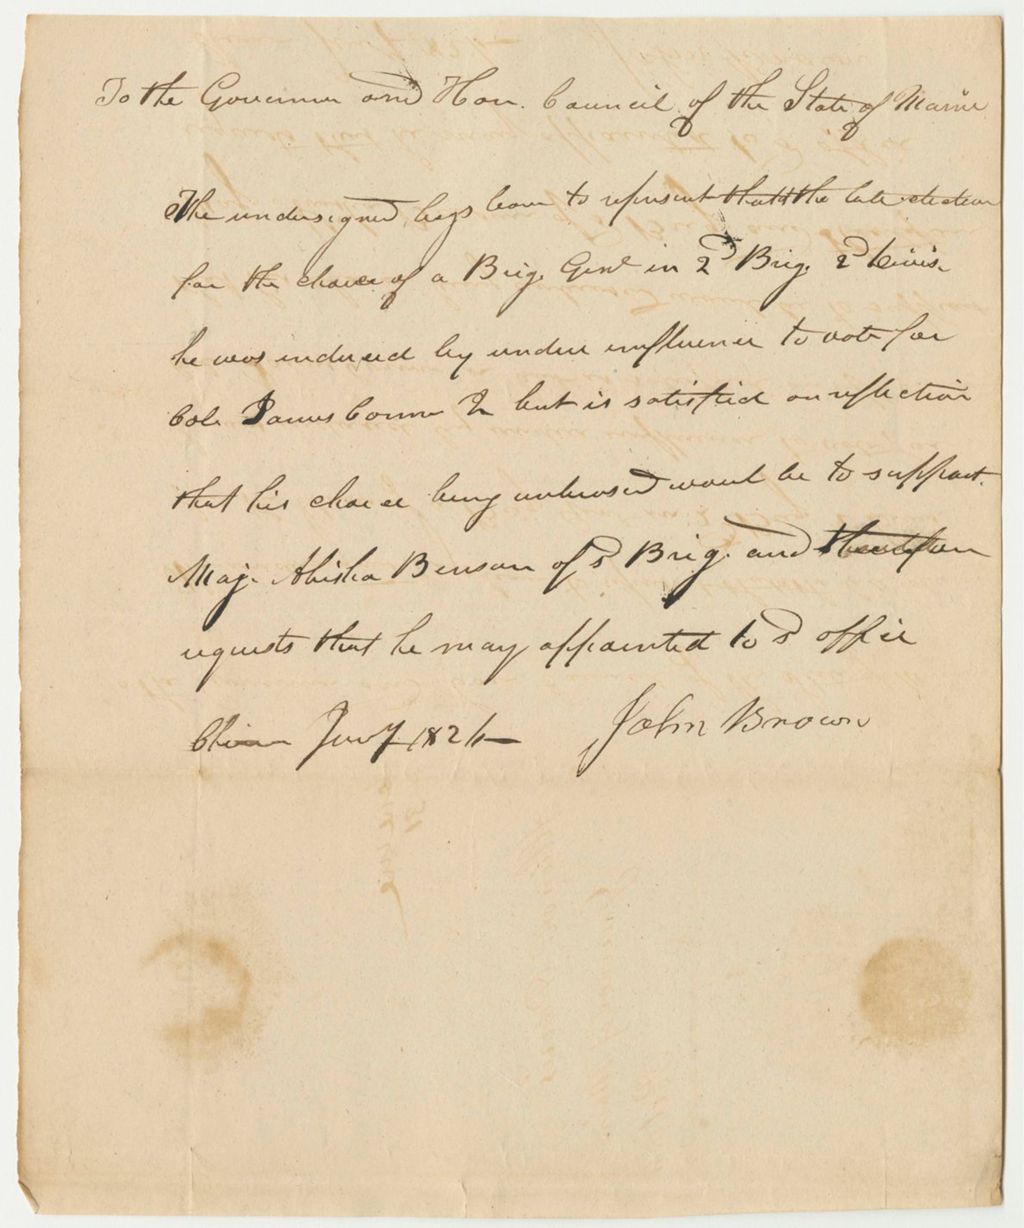 To the Governor and Hon. Council of the State of Maine
The undersigned begs leave to represent that at the late election
for the choice of a Brig. Genl in 2d Brig. 2d Divis.
he was induced by undue influence to vote for
Col. James Connor but is satisfied on reflection
that his choice being unbiased would be to support
Maj. Abisha Benson of sd Brig. and therefore
requests that he may appointed to sd office
John Brown